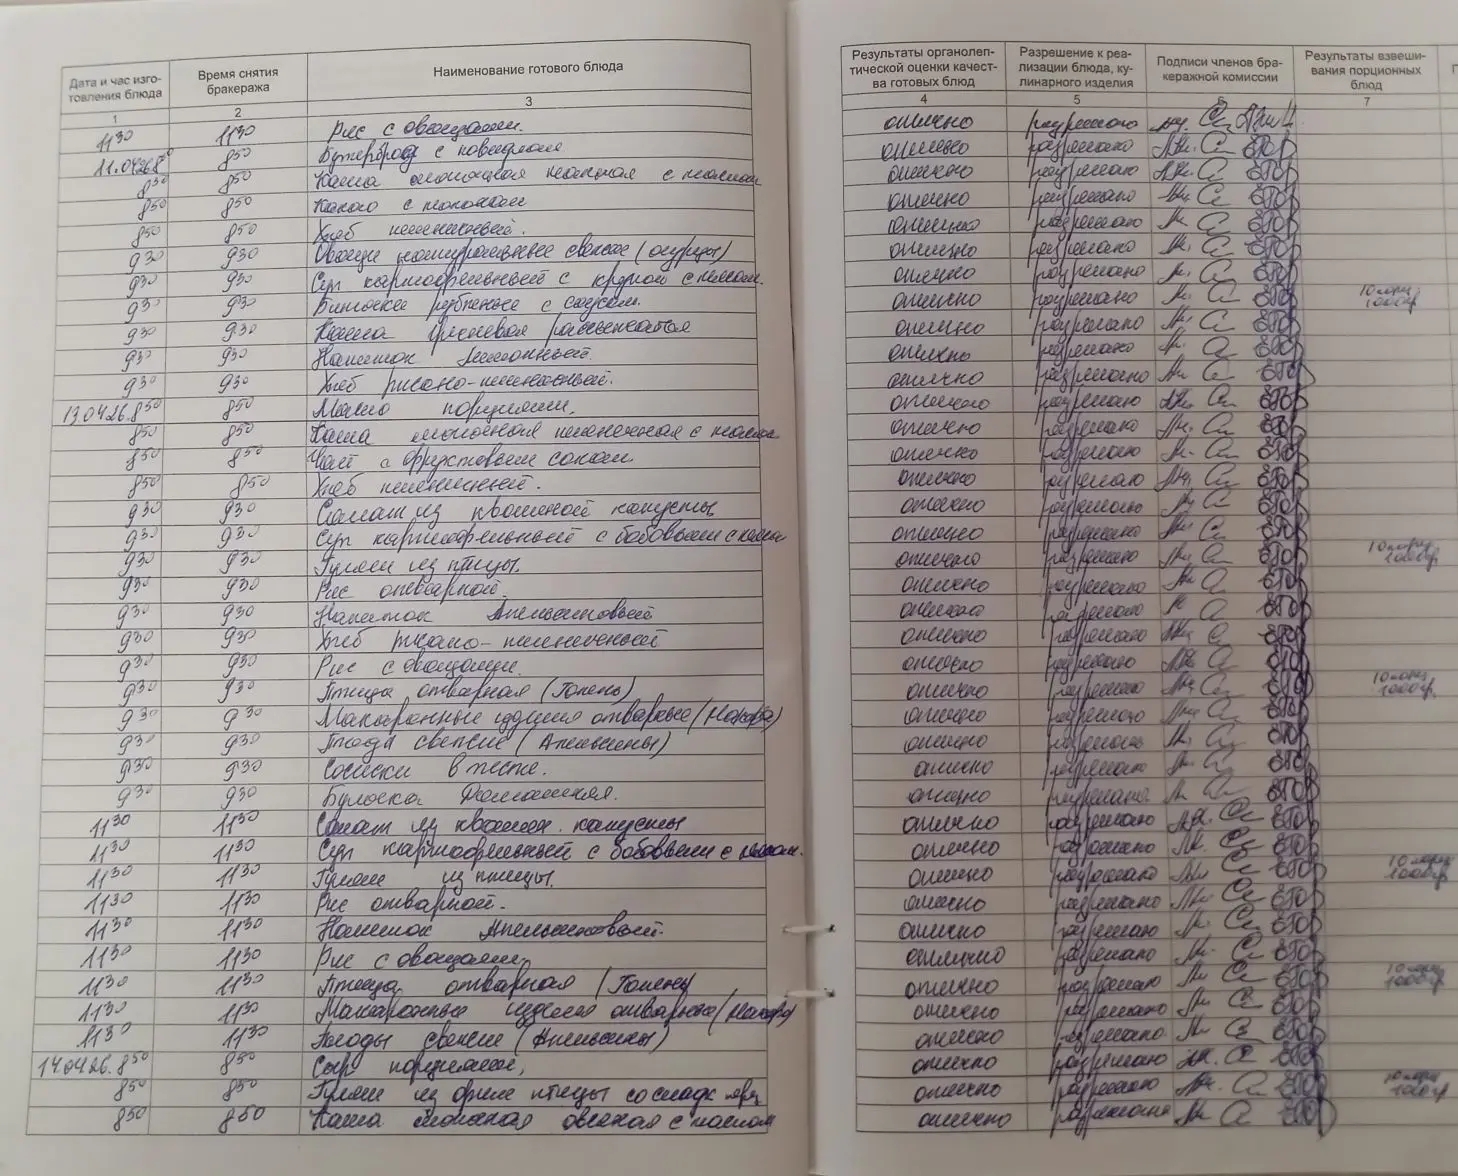 Дата и час изго-
товления блюда
Время снятия
бракеража
Наименование готового блюда
Результаты органолеп-
тической оценки качест-
ва готовых блюд
Разрешение к реа-
лизации блюда, ку-
линарного изделия
Подписи членов бра-
керажной комиссии
Результаты взвеши-
вания порционных
блюд
1 2 3 4 5 6 7
11 30 11 30 Рис с овощами. отлично разрешено
11.04.26 8 50 8 50 Бутерброд с повидлом отлично разрешено
8 50 8 50 Каша молочная манная с маслом отлично разрешено
8 50 8 50 Какао с молоком отлично разрешено
8 50 8 50 Хлеб пшеничный. отлично разрешено
9 30 9 30 Овощи натуральные свежие (огурцы) отлично разрешено
9 30 9 30 Суп картофельный с крупой с мясом. отлично разрешено
9 30 9 30 Биточки рубленые с соусом. отлично разрешено 10 порц 1000гр
9 30 9 30 Каша гречневая рассыпчатая отлично разрешено
9 30 9 30 Напиток лимонный. отлично разрешено
9 30 9 30 Хлеб ржано-пшеничный. отлично разрешено
13.04.26. 8 50 8 50 Масло порциями. отлично разрешено
8 50 8 50 Каша молочная пшеничная с маслом отлично разрешено
8 50 8 50 Чай с фруктовым соком. отлично разрешено
8 50 8 50 Хлеб пшеничный. отлично разрешено
9 30 9 30 Салат из квашеной капусты отлично разрешено
9 30 9 30 Суп картофельный с бобовыми с отлично разрешено
9 30 9 30 Гуляш из птицы. отлично разрешено 10 порц 1000гр
9 30 9 30 Рис отварной. отлично разрешено
9 30 9 30 Напиток Апельсиновый отлично разрешено
9 30 9 30 Хлеб ржано-пшеничный отлично разрешено
9 30 9 30 Рис с овощами. отлично разрешено
9 30 9 30 Птица отварная (Голень) отлично разрешено 10 порц 1000гр
9 30 9 30 Макаронные изделия отварные отлично разрешено
9 30 9 30 Плоды свежие (Апельсины) отлично разрешено
9 30 9 30 Сосиски в тесте. отлично разрешено
9 30 9 30 Булочка Домашняя. отлично разрешено
11 30 11 30 Салат из квашен. капусты отлично разрешено
11 30 11 30 Суп картофельный с бобовыми с мясом. отлично разрешено
11 30 11 30 Гуляш из птицы. отлично разрешено 10 порц 1000гр
11 30 11 30 Рис отварной. отлично разрешено
11 30 11 30 Напиток Апельсиновый. отлично разрешено
11 30 11 30 Рис с овощами. отлично разрешено
11 30 11 30 Птица отварная (Голень) отлично разрешено 10 порц 1000гр
11 30 11 30 Макаронные изделия отварные отлично разрешено
11 30 11 30 Плоды свежие (Апельсины) отлично разрешено
14.04.26. 8 50 8 50 Сыр порциями, отлично разрешено
8 50 8 50 Гуляш из филе птицы со сладк отлично разрешено 10 порц 1000гр
8 50 8 50 Каша молочная овсяная с маслом отлично разрешено